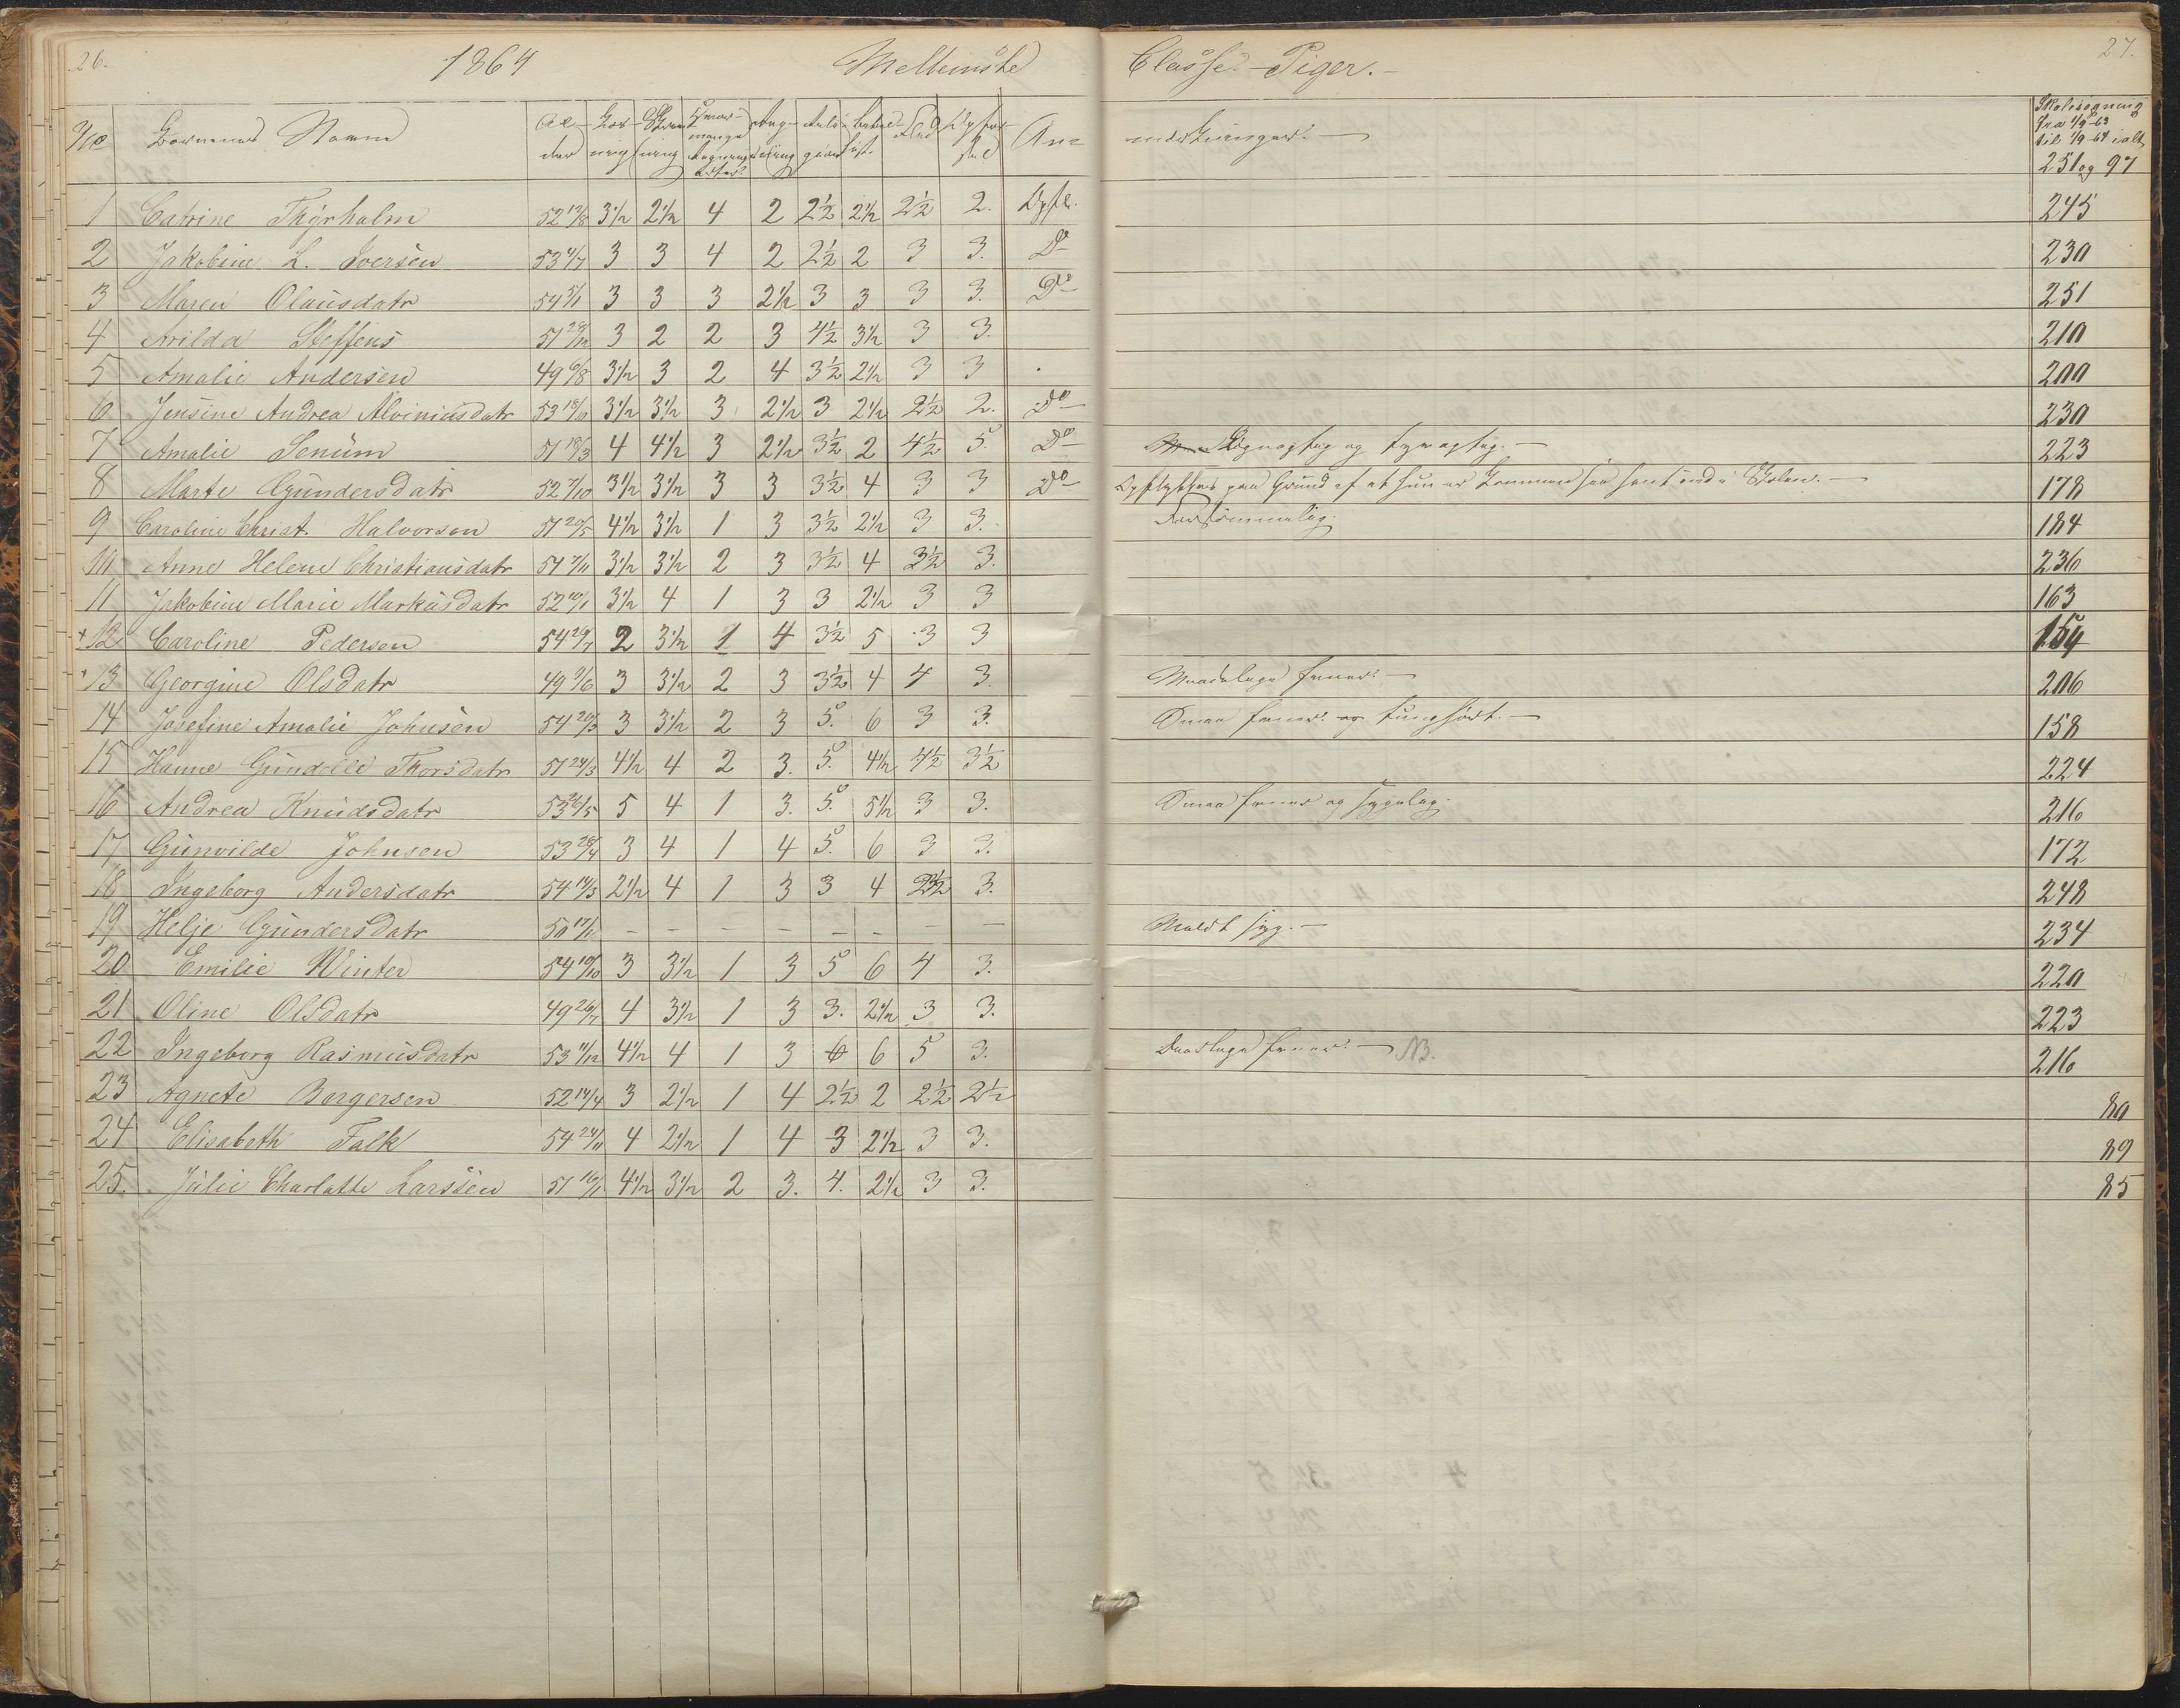 26. 1864 Mellemste Classe - Piger. - 27.
No Børnenes Navne Al-der Skriv-ning An-mærkninger. - Skolesøgning fra 1/9-63 til 1/9-64 ialt 251 og 97
1 Catrine Thyrholm 52 12/8 3½ 2½ 4 2 2½ 2½ 2½ 2. Opfl. 245
2 Jakobine L. Iversen 53 4/7 3 3 4 2 2½ 2 3 3. Do 230
3 Maren Olausdatr 54 5/1 3 3 3 2½ 3 3 3 3. Do 251
4 Arilda Steffens 51 28/12 3 2 2 3 4½ 3½ 3 3. 210
5 Amalie Andersen 49 6/8 3½ 3 2 4 3½ 2½ 3 3 200
6 Jensine Andrea Alviniusdatr 53 18/10 3½ 3½ 3 2½ 3 2½ 2½ 2. Do 230
7 Amalie Senum 51 18/3 4 4½ 3 2½ 3½ 2 4½ 5. Do Løgnagtig og tyvagtig. - 223
8 Marte Gundersdatr 52 7/10 3½ 3½ 3 3 3½ 4 3 3 Do Opflyttes paa Grund af at hun er kommen saa sent ind i Skolen. - 178
9 Caroline Christ. Halvorsen 51 20/5 4½ 3½ 1 3 3½ 2½ 3 3. Forsømmelig. 184
10 Anne Helene Christiansdatr 54 7/11 3½ 3½ 2 3 3½ 4 3½ 3. 236
11 Jakobine Marie Markusdatr 52 10/1 3½ 4 1 3 3 2½ 3 3 163
+12 Caroline Pedersen 54 29/7 2 3½ 1 4 3½ 5 3 3 154
+13 Georgine Olsdatr 49 9/6 3 3½ 2 3 3½ 4 4 3. Maadelige Evner. - 206
14 Josefine Amalie Johnsen 54 20/3 3 3½ 2 3 5. 6 3 3. Smaa Evner og tunghørt. - 158
15 Hanne Gundelle Thorsdatr 51 24/3 4½ 4 2 3. 5. 4½ 4½ 3½ 224
16 Andrea Knudsdatr 53 26/5 5 4 1 3. 5. 5½ 3 3. Smaa Evner og sygelig. 216
17 Gunvilde Johnsen 53 28/4 3 4 1 4 5. 6 3 3. 172
18 Ingeborg Andersdatr 54 14/3 2½ 4 1 3 3 4 2½ 3. 248
19 Helje Gundersdatr 50 17/11 - - - - - - - - Meldt syg. - 234
20 Emilie Winter 54 19/10 3 3½ 1 3 5 6 4 3. 220
21 Oline Olsdatr 49 26/7 4 3½ 1 3 3. 2½ 3 3. 223
22 Ingeborg Rasmusdatr 53 11/12 4½ 4 1 3 6 6 5 3. Daarlige Evner. - NB. 216
23 Agnete Borgersen 52 14/4 3 2½ 1 4 2½ 2 2½ 2½ 80
24 Elisabeth Falk 54 24/11 4 2½ 1 4 3 2½ 3 3. 89
25. Julie Charlotte Larssen 51 16/11 4½ 3½ 2 3. 4. 2½ 3 3. 85